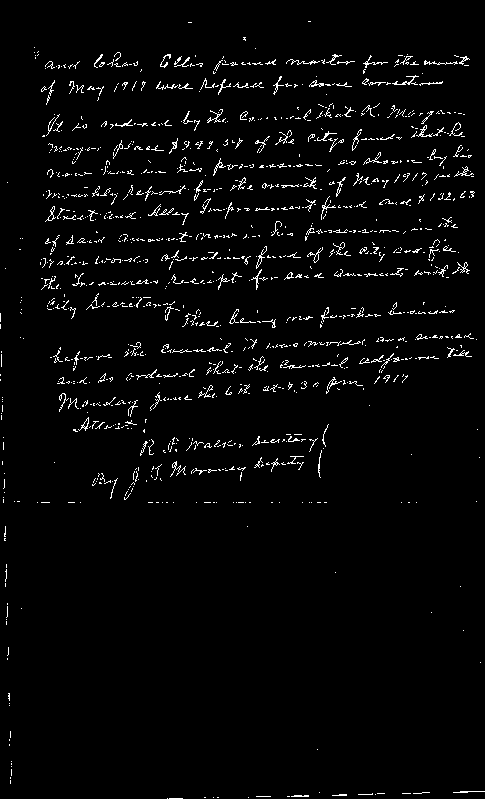 and Chas, Ellis pound master for the month
of May 1917 were refered for some correction
It is ordered by the Council that K. Morgan
Mayor place of the citys funds that he
now has in his possession, as shown by his
monthly report for the month of May 1917, in the
Street and Alley Improvement fund and $132.63
of said amount now in his possession, in the
Water works operating fund of the city and file
the Treasurers receipt for said amounts with the
City Secretary.
There being no further business
before the council it was moved and
and so ordered that the council adjourn till
Monday June the 6th at 7.30 pm 1917
Attest:
R. A. Walker Secretary
By J. T. Deputy